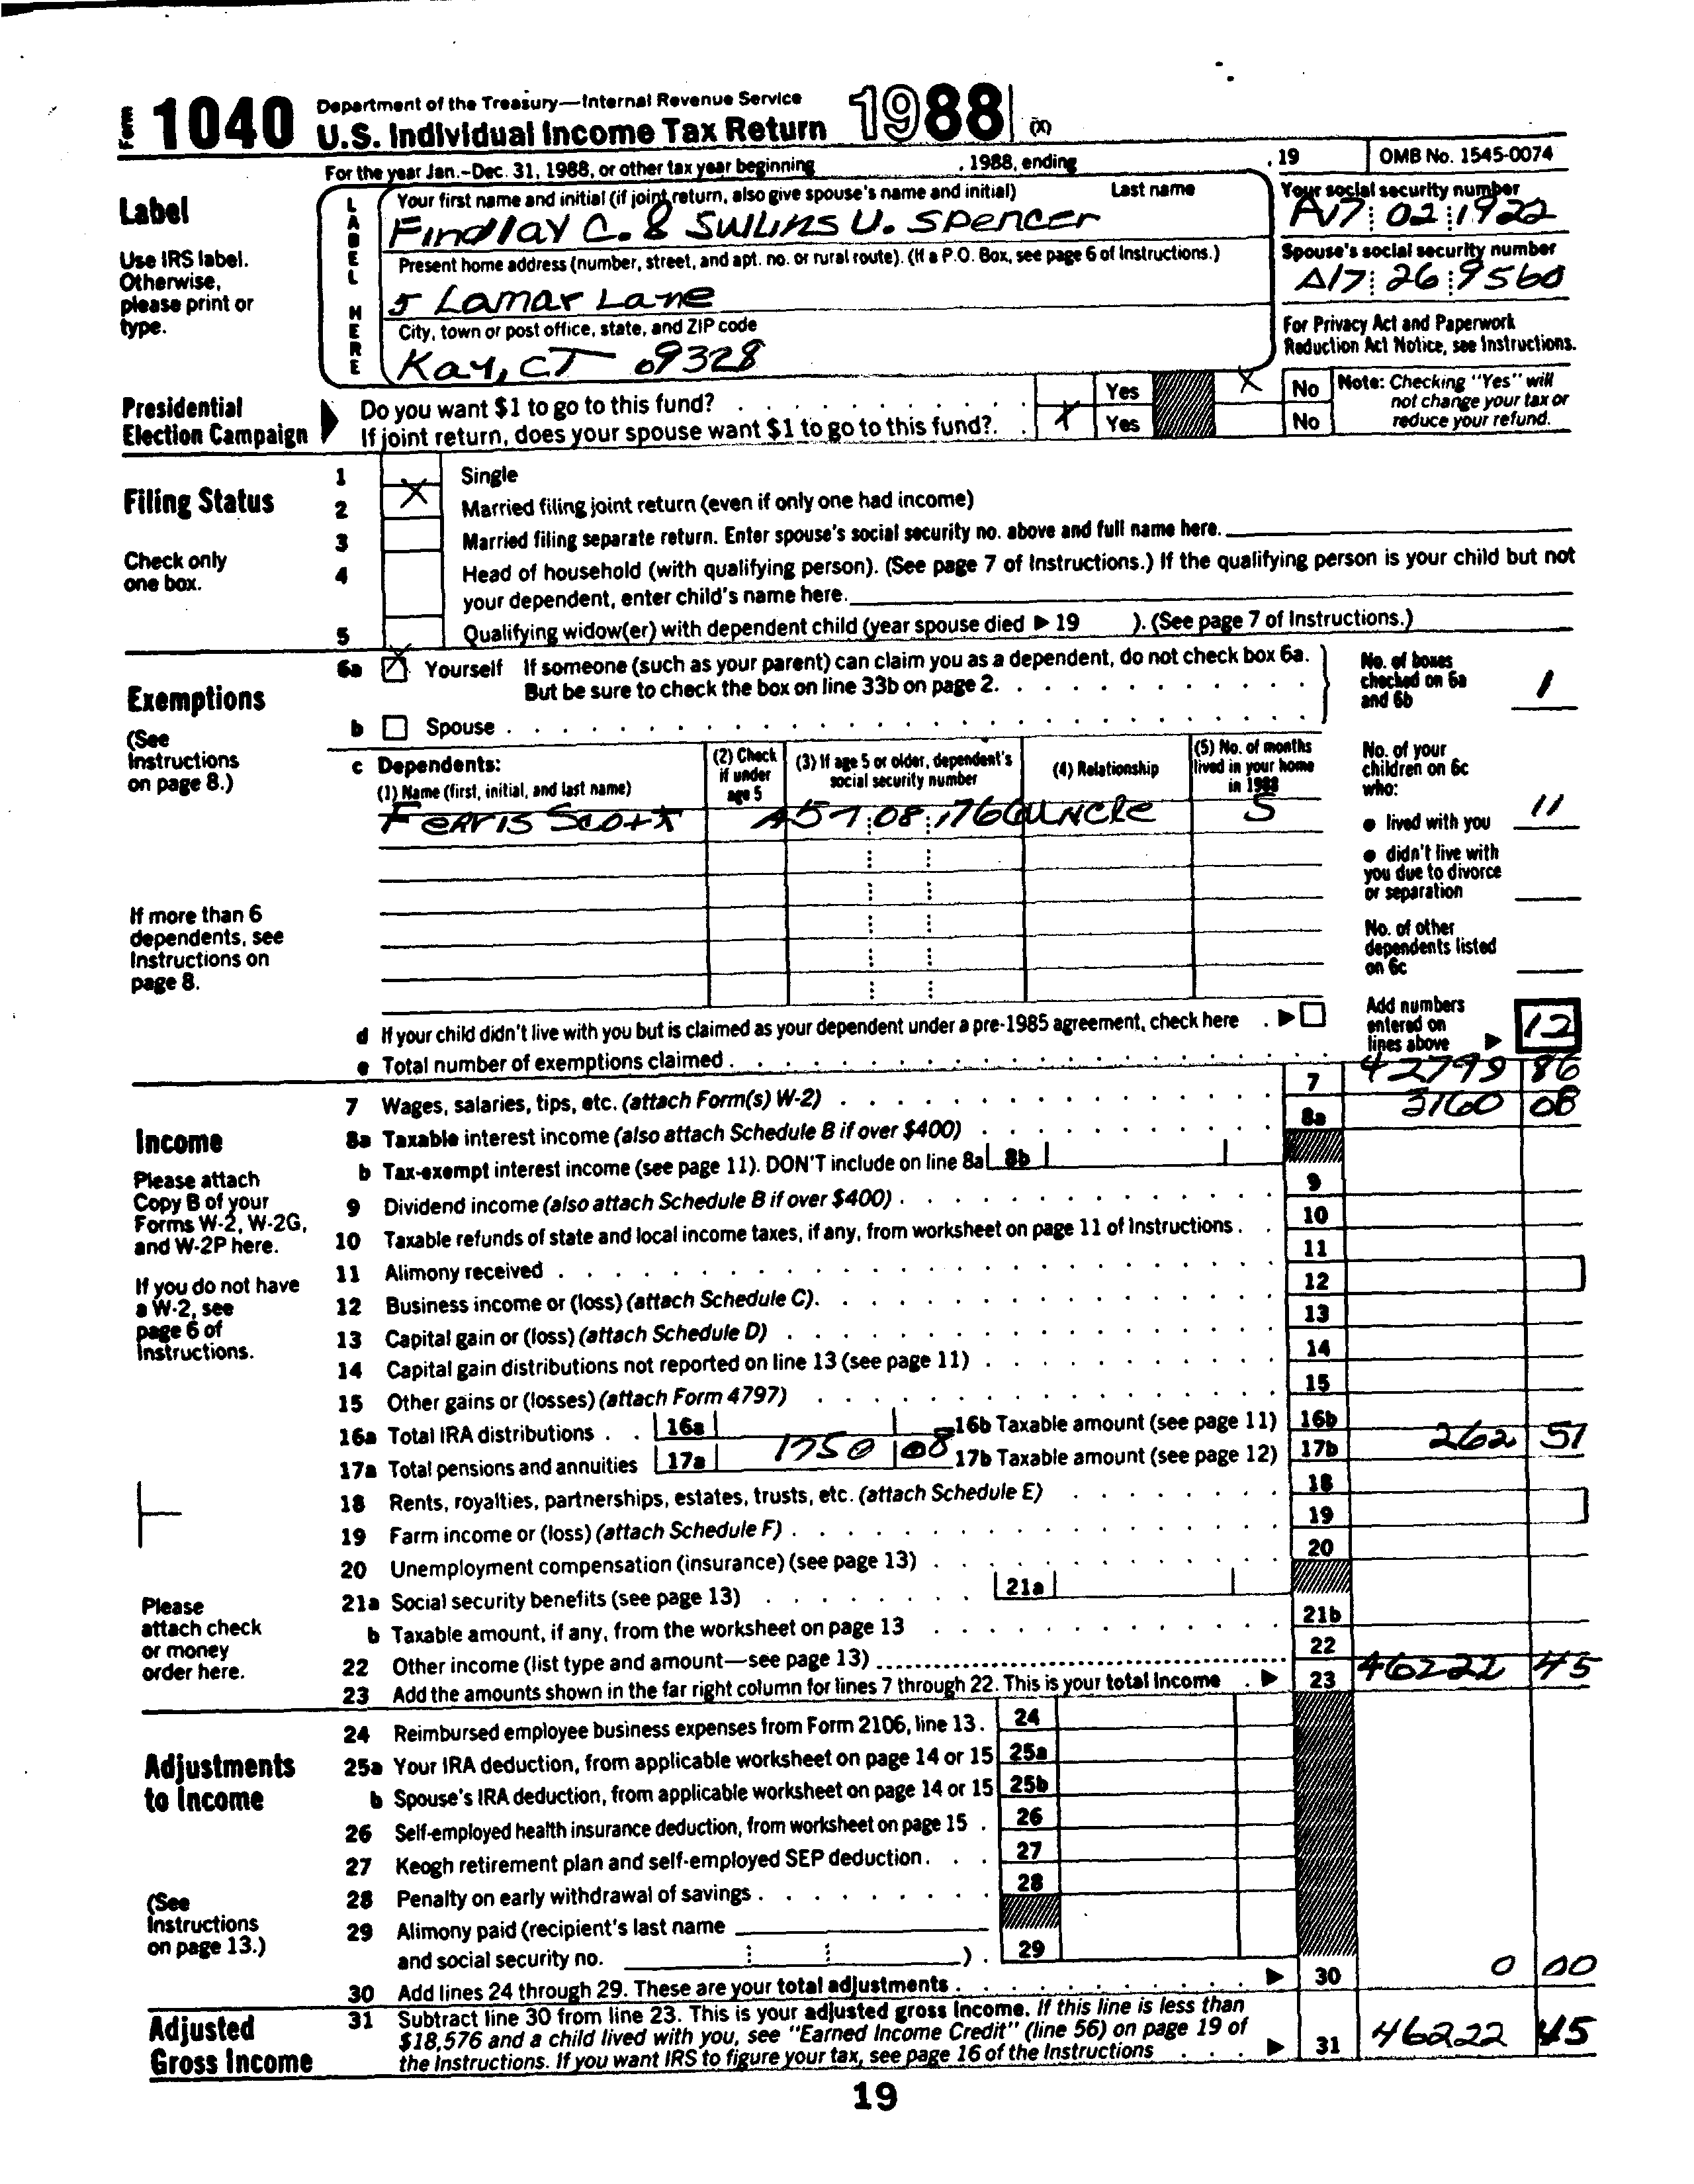 Form 1040 Department of the Treasury—Internal Revenue Service
U.S. Individual Income Tax Return 1988 (X)
For the year Jan.–Dec. 31, 1988, or other tax year beginning , 1988, ending , 19 OMB No. 1545-0074
Label
Use IRS label.
Otherwise,
please print or
type.
LABEL HERE
Your first name and initial (if joint return, also give spouse's name and initial) Last name
Findlay C. & Sullins U. Spencer
Your social security number
A17 02 1922
Present home address (number, street, and apt. no. or rural route). (If a P.O. Box, see page 6 of Instructions.)
5 Lamar Lane
Spouse's social security number
A17 26 9560
City, town or post office, state, and ZIP code
Kay, CT 09328
For Privacy Act and Paperwork
Reduction Act Notice, see Instructions.
Presidential
Election Campaign
Do you want $1 to go to this fund? Yes X No
If joint return, does your spouse want $1 to go to this fund? X Yes No
Note: Checking "Yes" will
not change your tax or
reduce your refund.
Filing Status
Check only
one box.
1 Single
2 X Married filing joint return (even if only one had income)
3 Married filing separate return. Enter spouse's social security no. above and full name here.
4 Head of household (with qualifying person). (See page 7 of Instructions.) If the qualifying person is your child but not
your dependent, enter child's name here.
5 Qualifying widow(er) with dependent child (year spouse died ▶ 19 ). (See page 7 of Instructions.)
Exemptions
(See
Instructions
on page 8.)
6a X Yourself If someone (such as your parent) can claim you as a dependent, do not check box 6a.
But be sure to check the box on line 33b on page 2.
b Spouse
No. of boxes
checked on 6a
and 6b 1
c Dependents:
(1) Name (first, initial, and last name)
(2) Check
if under
age 5
(3) If age 5 or older, dependent's
social security number
(4) Relationship
(5) No. of months
lived in your home
in 1988
Ferris Scott A57 08 1766 Uncle 5
No. of your
children on 6c
who:
● lived with you 11
● didn't live with
you due to divorce
or separation
No. of other
dependents listed
on 6c
If more than 6
dependents, see
Instructions on
page 8.
d If your child didn't live with you but is claimed as your dependent under a pre-1985 agreement, check here ▶
e Total number of exemptions claimed
Add numbers
entered on
lines above ▶ 12
Income
Please attach
Copy B of your
Forms W-2, W-2G,
and W-2P here.
If you do not have
a W-2, see
page 6 of
Instructions.
7 Wages, salaries, tips, etc. (attach Form(s) W-2) 7 42799 86
8a Taxable interest income (also attach Schedule B if over $400) 8a 3160 08
b Tax-exempt interest income (see page 11). DON'T include on line 8a 8b
9 Dividend income (also attach Schedule B if over $400) 9
10 Taxable refunds of state and local income taxes, if any, from worksheet on page 11 of Instructions 10
11 Alimony received 11
12 Business income or (loss) (attach Schedule C) 12
13 Capital gain or (loss) (attach Schedule D) 13
14 Capital gain distributions not reported on line 13 (see page 11) 14
15 Other gains or (losses) (attach Form 4797) 15
16a Total IRA distributions 16a 16b Taxable amount (see page 11) 16b
17a Total pensions and annuities 17a 1750 08 17b Taxable amount (see page 12) 17b 262 51
18 Rents, royalties, partnerships, estates, trusts, etc. (attach Schedule E) 18
19 Farm income or (loss) (attach Schedule F) 19
20 Unemployment compensation (insurance) (see page 13) 20
21a Social security benefits (see page 13) 21a
b Taxable amount, if any, from the worksheet on page 13 21b
22 Other income (list type and amount—see page 13) 22
23 Add the amounts shown in the far right column for lines 7 through 22. This is your total income ▶ 23 46222 45
Please
attach check
or money
order here.
Adjustments
to Income
(See
Instructions
on page 13.)
24 Reimbursed employee business expenses from Form 2106, line 13. 24
25a Your IRA deduction, from applicable worksheet on page 14 or 15 25a
b Spouse's IRA deduction, from applicable worksheet on page 14 or 15 25b
26 Self-employed health insurance deduction, from worksheet on page 15 26
27 Keogh retirement plan and self-employed SEP deduction 27
28 Penalty on early withdrawal of savings 28
29 Alimony paid (recipient's last name
and social security no. ) 29
30 Add lines 24 through 29. These are your total adjustments ▶ 30 0 00
Adjusted
Gross Income
31 Subtract line 30 from line 23. This is your adjusted gross income. If this line is less than
$18,576 and a child lived with you, see "Earned Income Credit" (line 56) on page 19 of
the Instructions. If you want IRS to figure your tax, see page 16 of the Instructions ▶ 31 46222 45
19